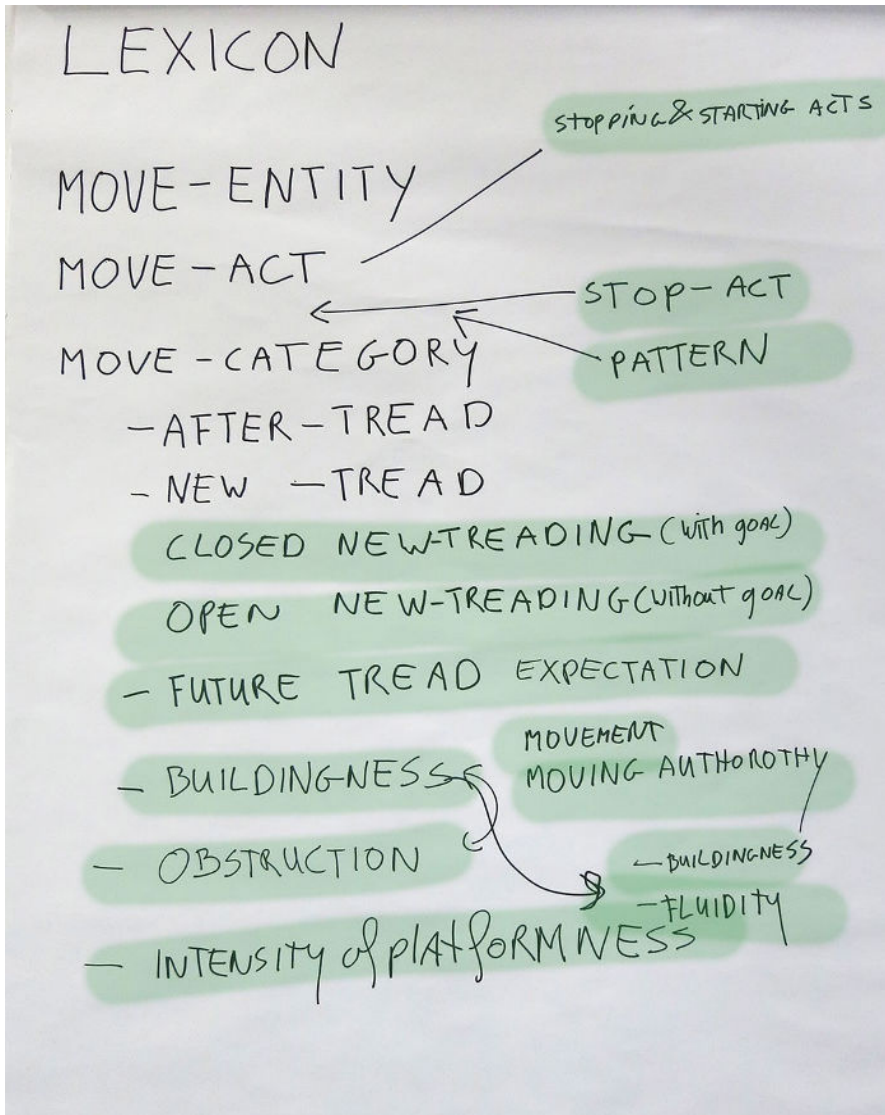 LEXICON
STOPPING & STARTING ACTS
MOVE-ENTITY
MOVE-ACT
STOP-ACT
PATTERN
MOVE-CATEGORY
-AFTER-TREAD
-NEW-TREAD
CLOSED NEW-TREADING (with goAL)
OPEN NEW-TREADING (without goAL)
- FUTURE TREAD EXPECTATION
MOVEMENT
MOVING AUTHOROTHY
- BUILDINGNESS
- BUILDINGNESS
- OBSTRUCTION
- FLUIDITY
- INTENSITY of plATfORMNESS